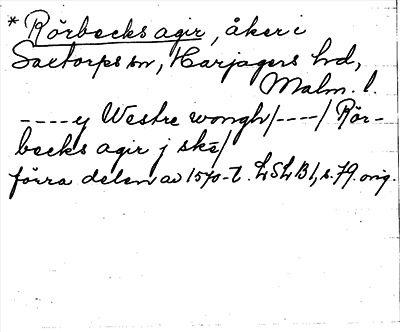 * Rörbecks agir, åker i
Saxtorps sn, Harjagers hrd,
Malm. l.
----y Westre wongh/----/ Rör-
becks agir j ske/
förra delen av 1570-t. LSLB1, s. 79. orig.